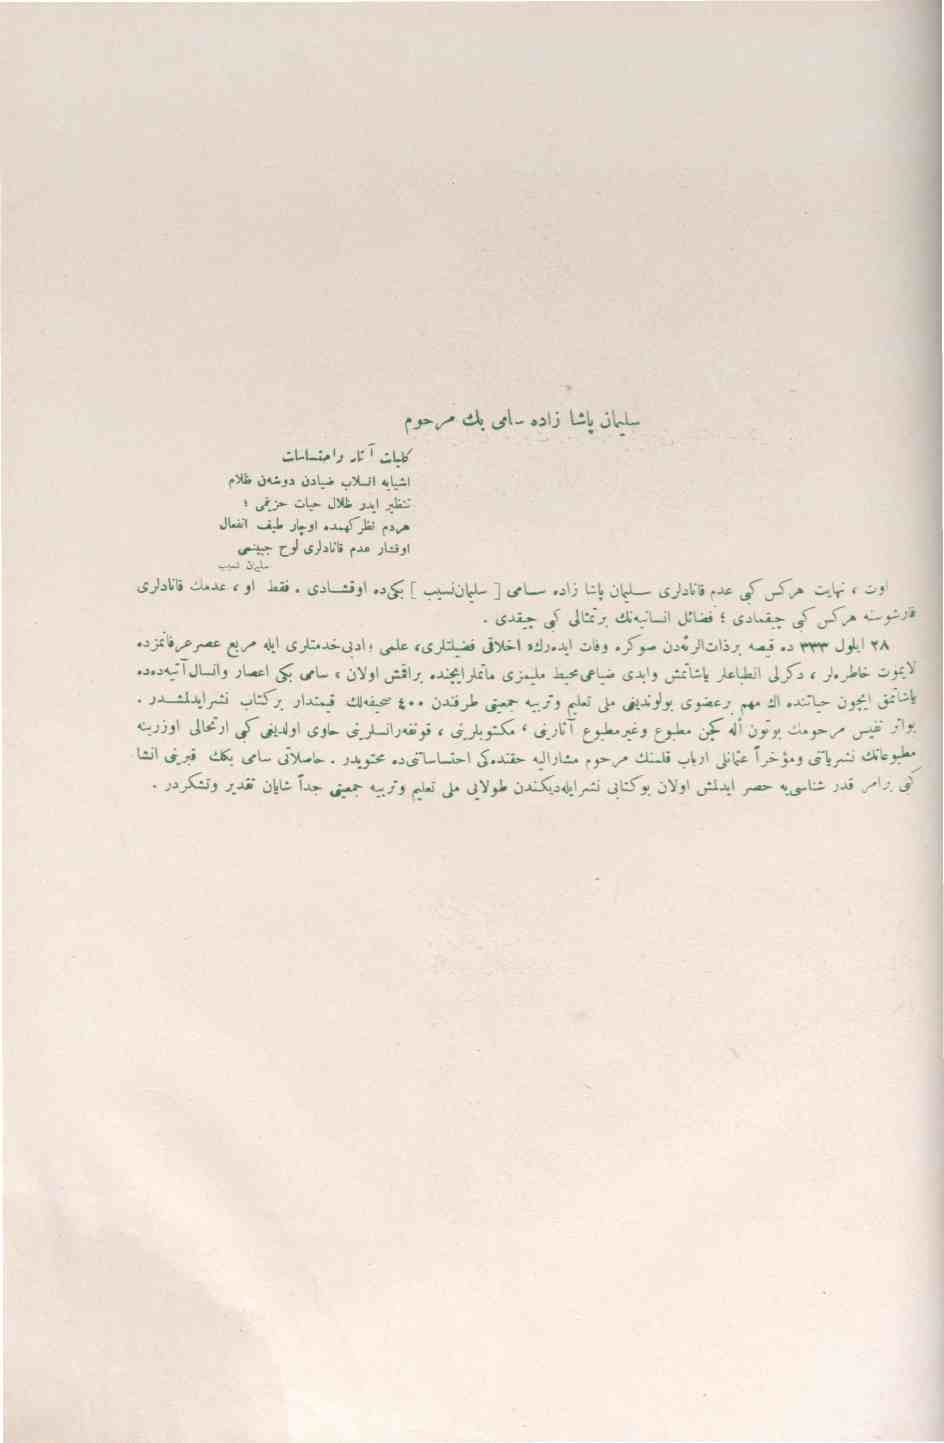 سلیمان پاشا زاده سامی بك مرحوم
كلیات آثار واحتساسات
اشیایه انسلاب ضیادن دوشەن ظلام
تنظیر ایدر ظلال حیات حزیمی ؛
هردم نظركهمده اوچار طیف انفعال
اوقشار عدم قانادلری لوح جبینمی
سلیمان نسیب
اوت ، نهایت هركس كبی عدم قانادلری سلیمان پاشا زاده سامی [ سلیمان نسیب ] بكی ده اوقشادی . فقط او ، عدمك قانادلری
قارشوسنه هركس كبی چیقمادی ؛ فضائل انسانیه نك برتمثالی كبی چیقدی .
۲۸ ایلول ۳۳۳ ده قیصه برذات الرئه دن صوكره وفات ایده رك، اخلاقی فضیلتلری، علمی ، ادبی خدمتلری ایله مربع عصر عرفانمزده
لایموت خاطره لر ، دكرلی انطباعلر یاشاتمش وابدی ضیاعی محیط ملیمزی ماتملر ایچنده براقمش اولان ، سامی بكی اعصار وانسال آتیه ده ده
یاشاتمق ایچون حیاتنده اك مهم برعضوی بولوندیغی ملی تعلیم وتربیه جمعیتی طرفندن ٤٠٠ صحیفه لك قیمتدار بركتاب نشر ایدلمشدر .
بواثر نفیس مرحومك بوتون أله كچن مطبوع وغیرمطبوع آثارینی ، مكتوبلرینی ، قونفه رانسلرینی حاوی اولدیغی كبی ارتحالی اوزرینه
مطبوعاتك نشریاتنی ومؤخراً عثمانلی ارباب قلمنك مرحوم مشارالیه حقنده كی احتساساتنی ده محتویدر . حاصلاتی سامی بكك قبرینی انشا
كبی برامر قدر شناسی یه حصر ایدلمش اولان بوكتابی نشر ایله دیكندن طولایی ملی تعلیم وتربیه جمعیتی جداً شایان تقدیر وتشكردر .